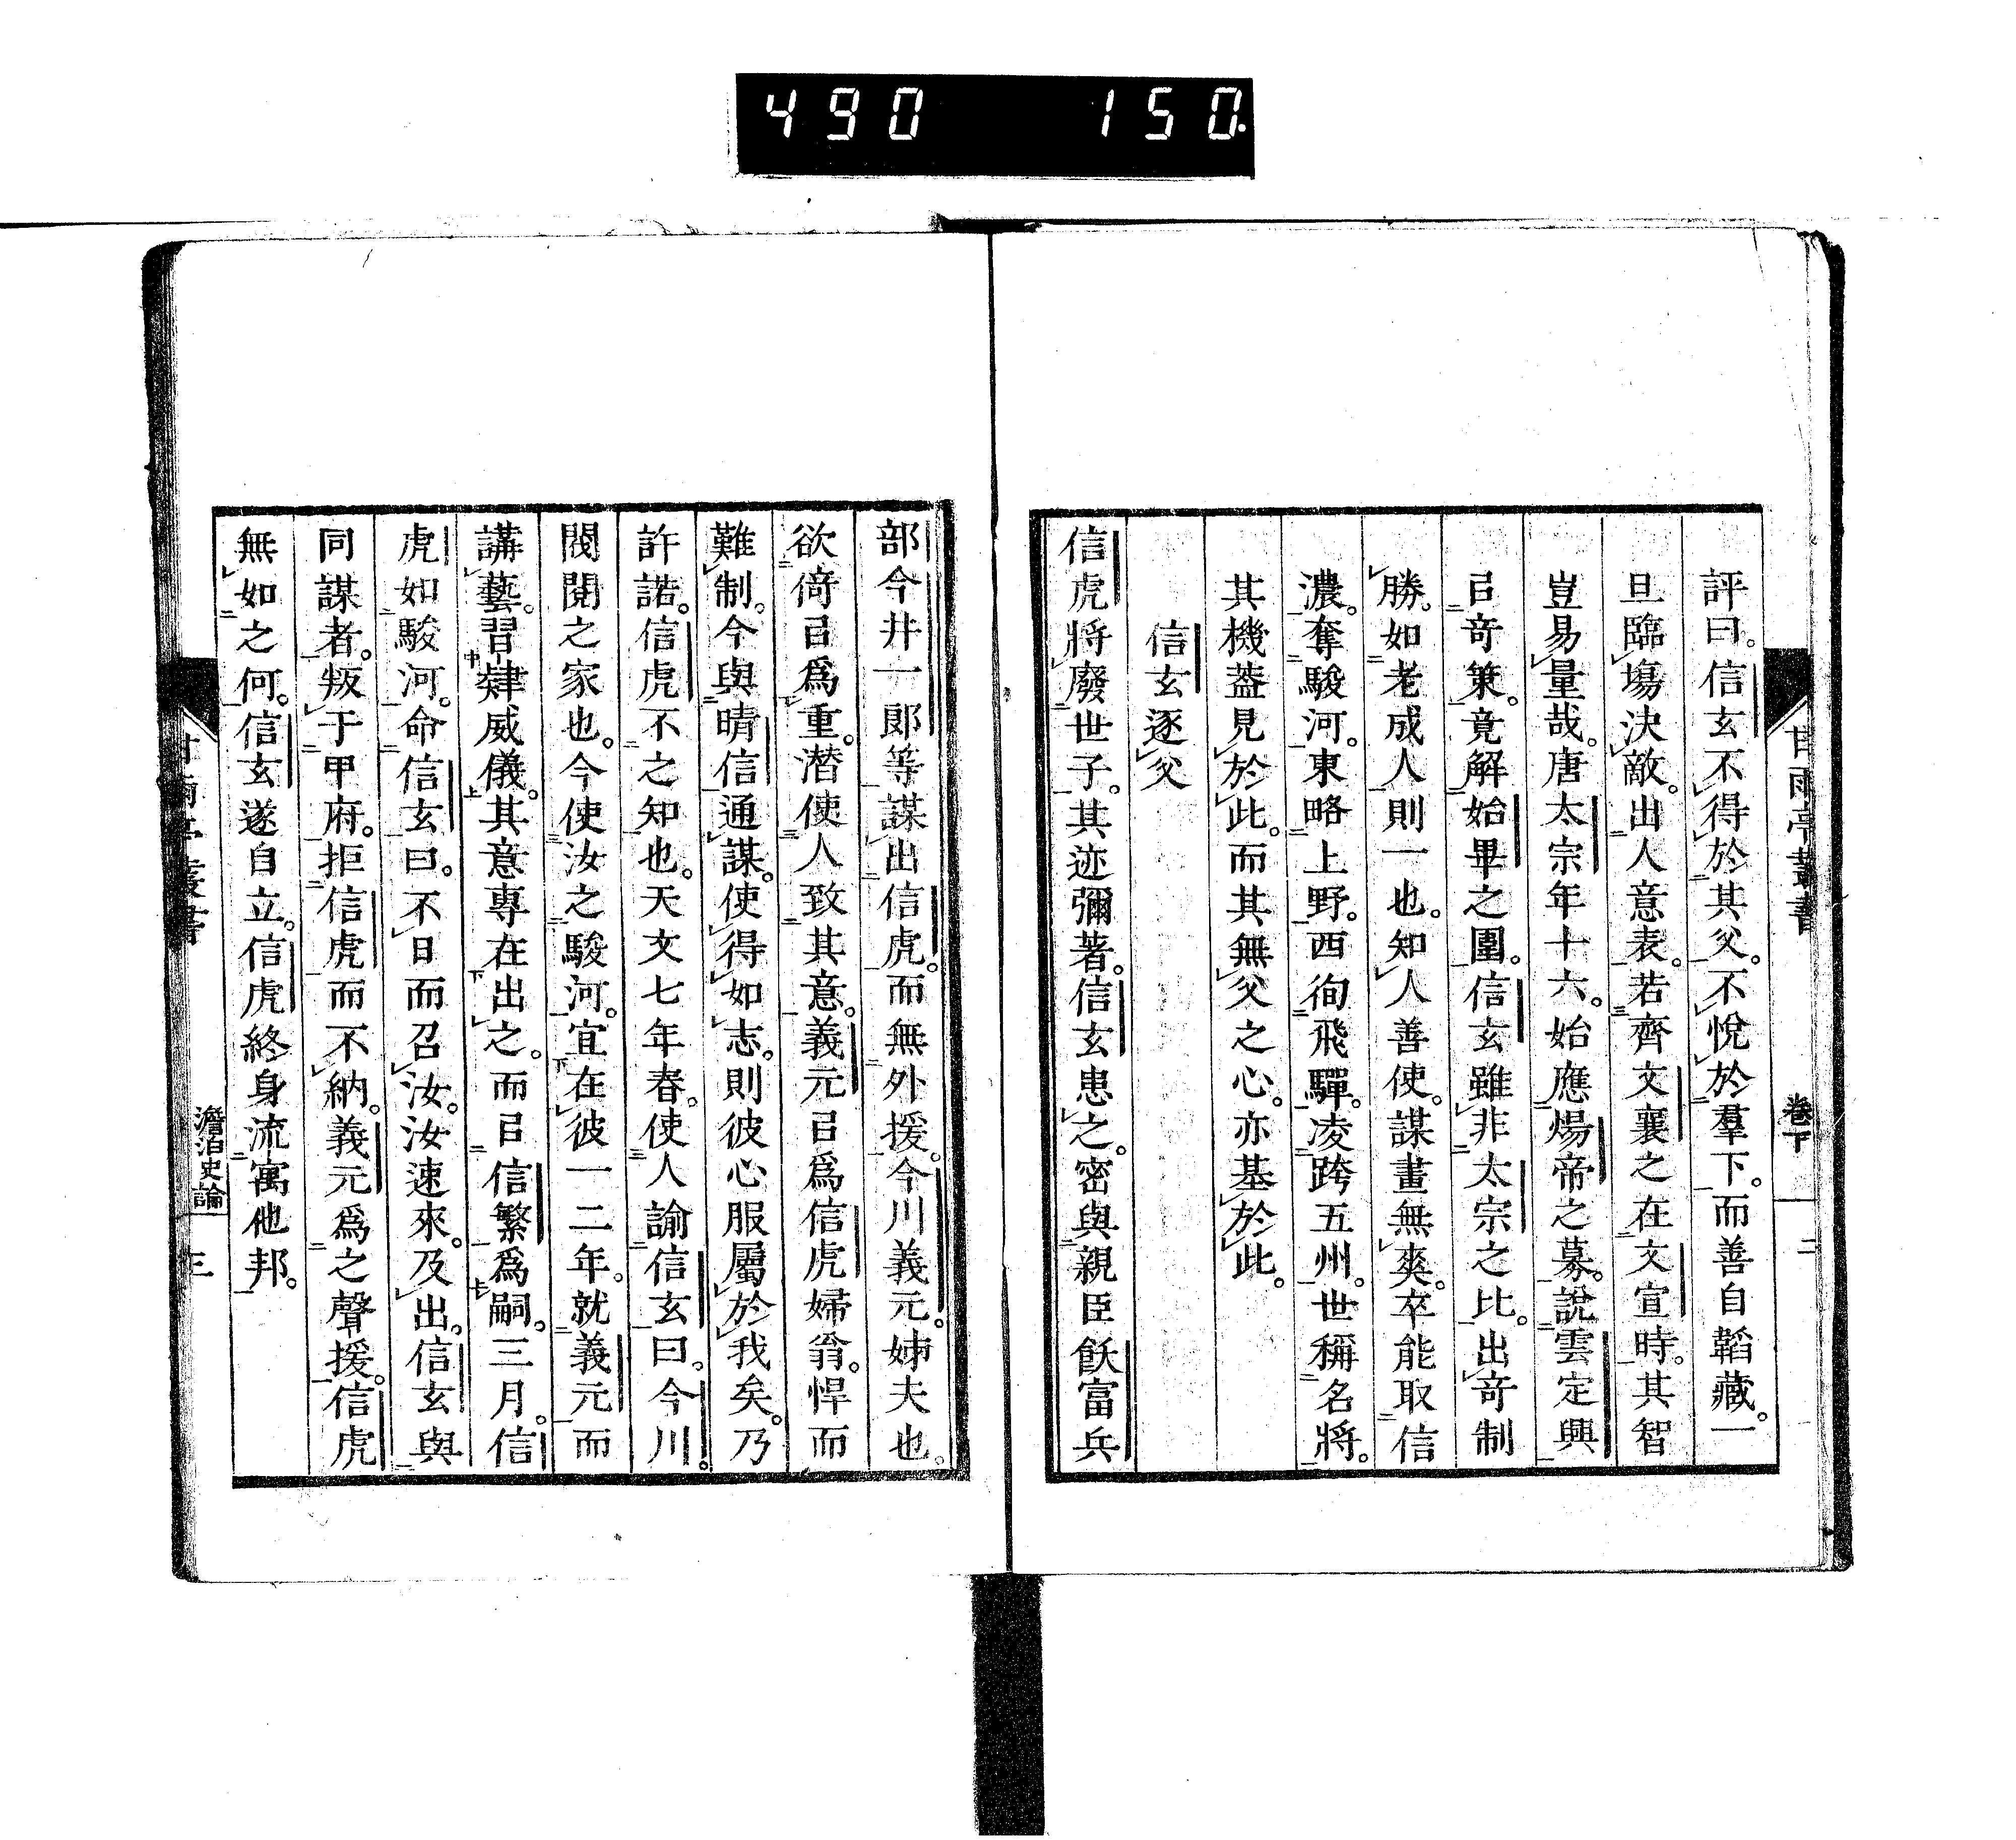 490 150.
甘雨亭叢書 卷下 二
評曰。信玄不得於其父。不悅於羣下。而善自韜藏。一
旦臨塲決敵。出人意表。若齊文襄之在文宣時。其智
豈易量哉。唐太宗年十六。始應煬帝之募。說雲定興
㠯奇策。竟解始畢之圍。信玄雖非太宗之比。出奇制
勝。如老成人則一也。知人善使。謀畫無爽。卒能取信
濃。奪駿河。東略上野。西徇飛驒。凌跨五州。世稱名將。
其機蓋見於此。而其無父之心。亦基於此。
信玄逐父
信虎將廢世子。其迹彌著。信玄患之。密與親臣飫富兵
部今井一郎等謀出信虎。而無外援。今川義元。姉夫也。
欲倚㠯爲重。潛使人致其意。義元㠯爲信虎婦翁。悍而
難制。今與晴信通謀。使得如志。則彼心服屬於我矣。乃
許諾。信虎不之知也。天文七年春。使人諭信玄曰。今川。
閥閱之家也。今使汝之駿河。宜在彼一二年。就義元而
講藝。習肄威儀。其意專在出之。而㠯信繁爲嗣。三月。信
虎如駿河。命信玄曰。不日而召汝。汝速來。及出。信玄與
同謀者。叛于甲府。拒信虎而不納。義元爲之聲援。信虎
無如之何。信玄遂自立。信虎終身流寓他邦。
甘雨亭叢書 澹泊史論 三